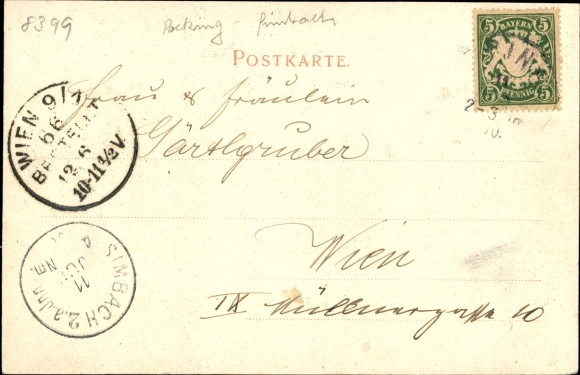 8399
Pocking -
POSTKARTE.
BAYERN
5 5
5 PFENNIG 5
Frau & Fräulein
Gärtlgruber
Wien
IX Müllnergasse 10
WIEN 9/1
BESTELLT
12 6
10-11½V
SIMBACH 2.a.Inn.
11
JU
Nm.